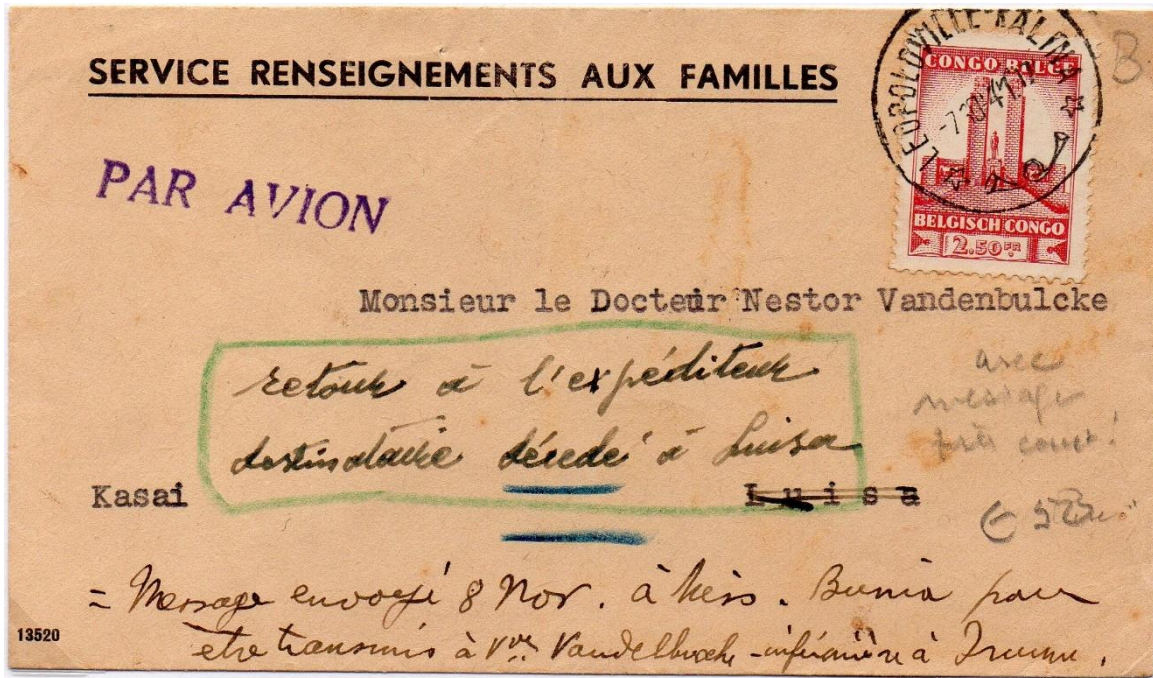 SERVICE RENSEIGNEMENTS AUX FAMILLES
LEOPOLDVILLE-KALINA
CONGO BELGE
BELGISCH CONGO
2.50 FR
B
PAR AVION
Monsieur le Docteur Nestor Vandenbulcke
retour à l'expéditeur
destinataire décedé à Luisa
avec
message
Kasai
Luisa
= Message envoyé 8 Nov. à Bunia pour
être transmis à Vve Vandelbucke - infirmière à Irumu.
13520